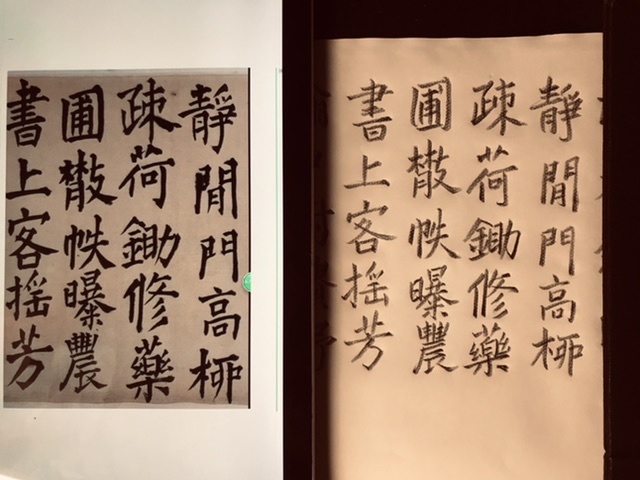 靜閒門高柳
疎荷鋤修藥
圃散帙曝農
書上客揺芳
靜閒門高柳
疎荷鋤修藥
圃散帙曝農
書上客揺芳